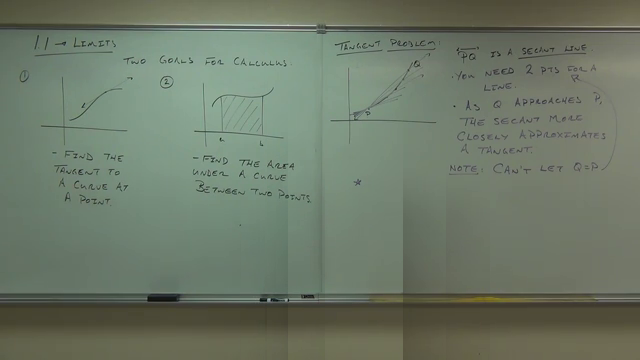 1.1 → LIMITS
TWO GOALS FOR CALCULUS:
①
②
- FIND THE
TANGENT TO
A CURVE AT
A POINT.
- FIND THE AREA
UNDER A CURVE
BETWEEN TWO POINTS.
TANGENT PROBLEM:
Q
P
*
PQ IS A SECANT LINE.
• YOU NEED 2 PTS FOR A
LINE.
• AS Q APPROACHES P,
THE SECANT MORE
CLOSELY APPROXIMATES
A TANGENT.
NOTE: CAN'T LET Q=P